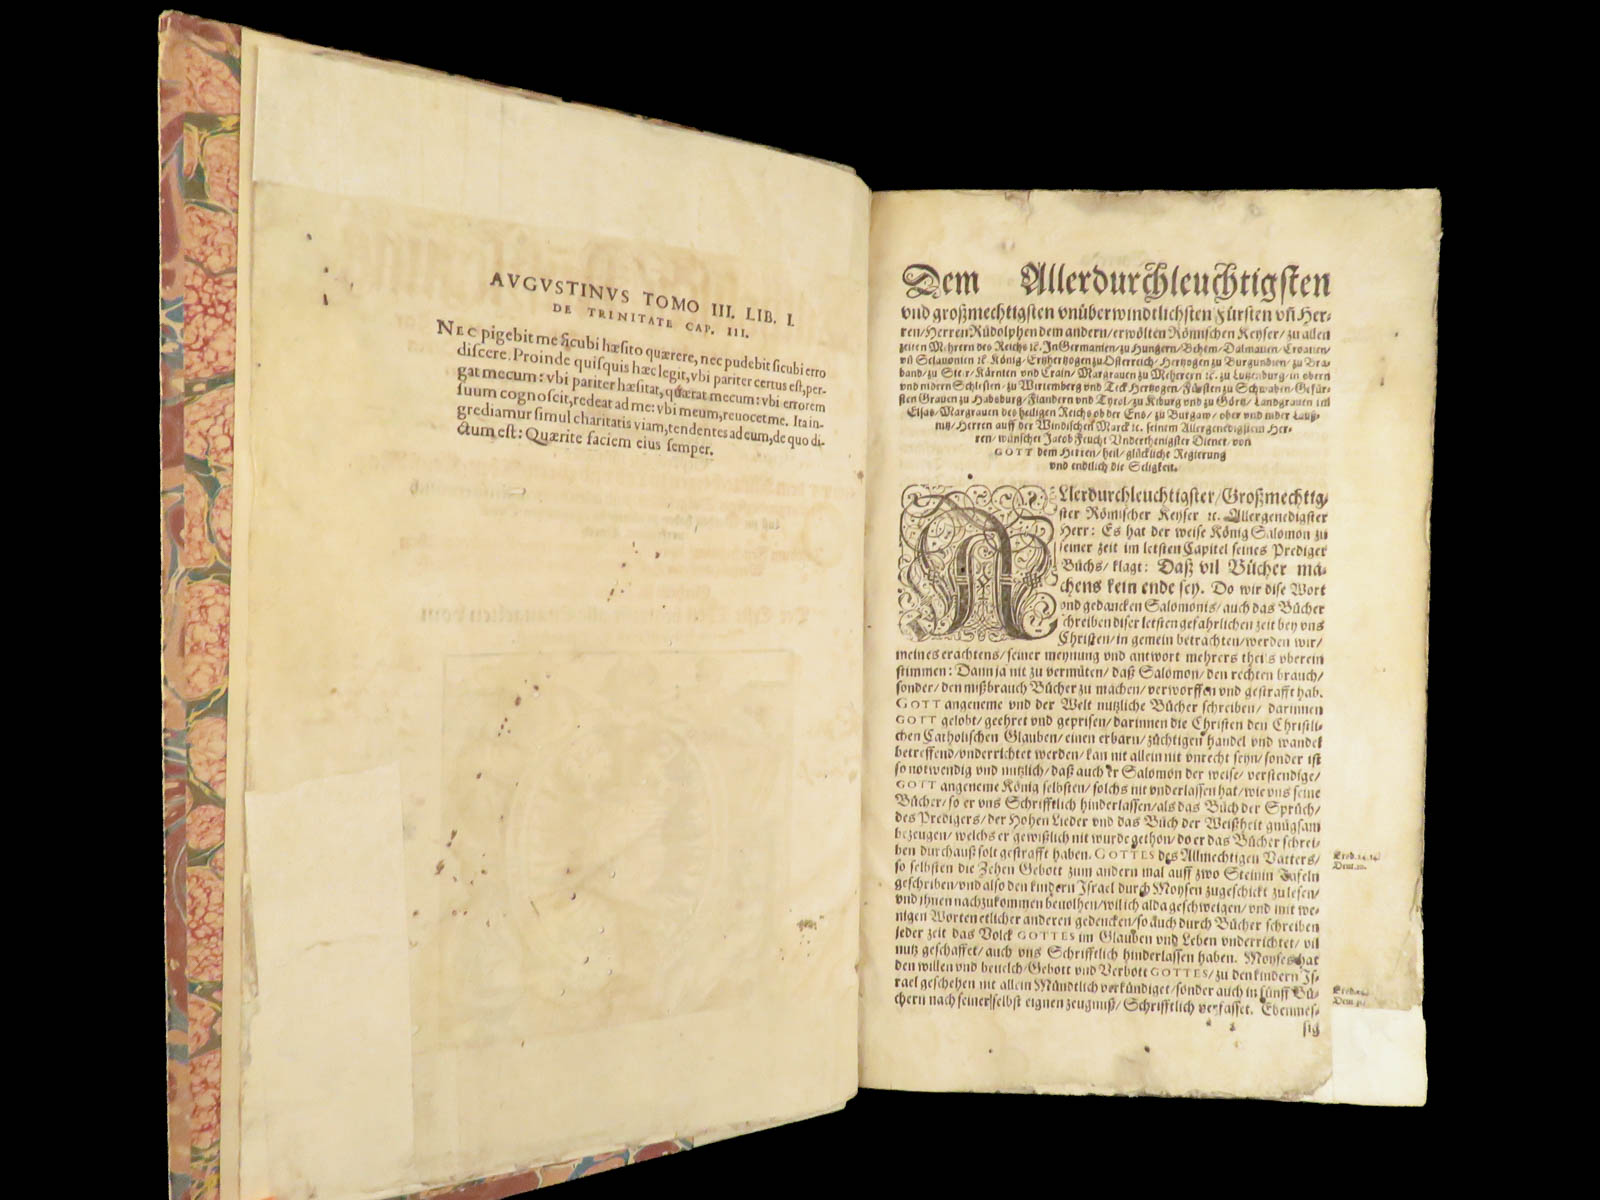 AVGVSTINVS TOMO III. LIB. I.
DE TRINITATE CAP. III.
NEC pigebit me sicubi hæsito quærere, nec pudebit sicubi erro
discere. Proinde quisquis hæc legit, vbi pariter certus est, per-
gat mecum: vbi pariter hæsitat, quærat mecum: vbi errorem
suum cognoscit, redeat ad me: vbi meum, reuocet me. Ita in-
grediamur simul charitatis viam, tendentes ad eum, de quo di-
ctum est: Quærite faciem eius semper.
Dem Allerdurchleuchtigsten
vnd großmechtigsten vnüberwindtlichsten Fürsten vñ Her-
ren/ Herren Rüdolphen dem andern/ erwölten Römischen Keyser/ zu allen
zeiten Mehrern des Reichs ꝛc. In Germanien/ zu Hungern/ Behem/ Dalmatien/ Croatien/
vñ Sclauonien ꝛc. König/ Ertzhertzogen zu Osterreich/ Hertzogen zu Burgundien/ zu Bra-
band/ zu Steir/ Kärnten vnd Crain/ Margrauen zu Meherern ꝛc. zu Lutzenburg/ in obern
vnd nidern Schlesien/ zu Wirtemberg vnd Teck Hertzogen/ Fürsten zu Schwaben/ Gefür-
sten Grauen zu Habsburg/ Flandern vnd Tyrol/ zu Kiburg vnd zu Görtz/ Landgrauen im
Elsas/ Margrauen des heiligen Reichs ob der Ens/ zu Burgaw/ ober vnd nider Lauß-
nitz/ Herren auff der Windischen Marck ꝛc. seinem Allergenedigstem Her-
ren/ wünschet Jacob Feucht Vnderthenigster Diener/ von
GOTT dem Herren/ heil/ glückliche Regierung
vnd endtlich die Seligkeit.
ALlerdurchleuchtigster/ Großmechtig-
ster Römischer Keyser ꝛc. Allergenedigster
Herr: Es hat der weise König Salomon zu
seiner zeit im letsten Capitel seines Prediger
Büchs/ klagt: Daß vil Bücher ma-
chens kein ende sey. Do wir dise Wort
vnd gedancken Salomonis/ auch das Bücher
schreiben diser letsten gefahrlichen zeit bey vns
Christen/ in gemein betrachten/ werden wir/
meines erachtens/ seiner meynung vnd antwort mehrers theils vberein
stimmen: Dann ja nit zu vermüten/ daß Salomon/ den rechten brauch/
sonder/ den mißbrauch Bücher zu machen/ verworffen vnd gestrafft hab.
GOTT angeneme vnd der Welt nutzliche Bücher schreiben/ darinnen
GOTT gelobt/ geehret vnd geprisen/ darinnen die Christen den Christli-
chen Catholischen Glauben/ einen erbarn/ züchtigen handel vnd wandel
betreffend/ vnderrichtet werden/ kan nit allein nit vnrecht seyn/ sonder ist
so notwendig vnd nutzlich/ daß auch der Salomon der weise/ verstendige/
GOTT angeneme König selbsten/ solchs nit vnderlassen hat/ wie vns seine
Bücher/ so er vns Schrifftlich hinderlassen/ als das Büch der Sprüch/
des Predigers/ der Hohen Lieder vnd das Büch der Weißheit gnügsam
bezeugen/ welchs er gewißlich nit wurde gethon/ do er das Bücher schrei-
ben durchauß solt gestrafft haben. GOTTES des Allmechtigen Vatters/
so selbsten die Zehen Gebott zum andern mal auff zwo Steinin Tafeln
geschriben/ vnd also den kindern Israel durch Moysen zugeschickt zu lesen/
vnd ihnen nachzukommen beuolhen/ wil ich alda geschweigen/ vnd mit we-
nigen Worten etlicher anderen gedencken/ so auch durch Bücher schreiben
jeder zeit das Volck GOTTES im Glauben vnd Leben vnderrichtet/ vil
nutz geschaffet/ auch vns Schrifftlich hinderlassen haben. Moyses hat
den willen vnd beuelch/ Gebott vnd Verbott GOTTES/ zu den kindern Is-
rael geschehen nit allein Mündtlich verkündiget/ sonder auch in fünff Bü-
chern nach seiner selbst eignen zeugnuß/ Schrifftlich verfasset. Ebenmes-
sig